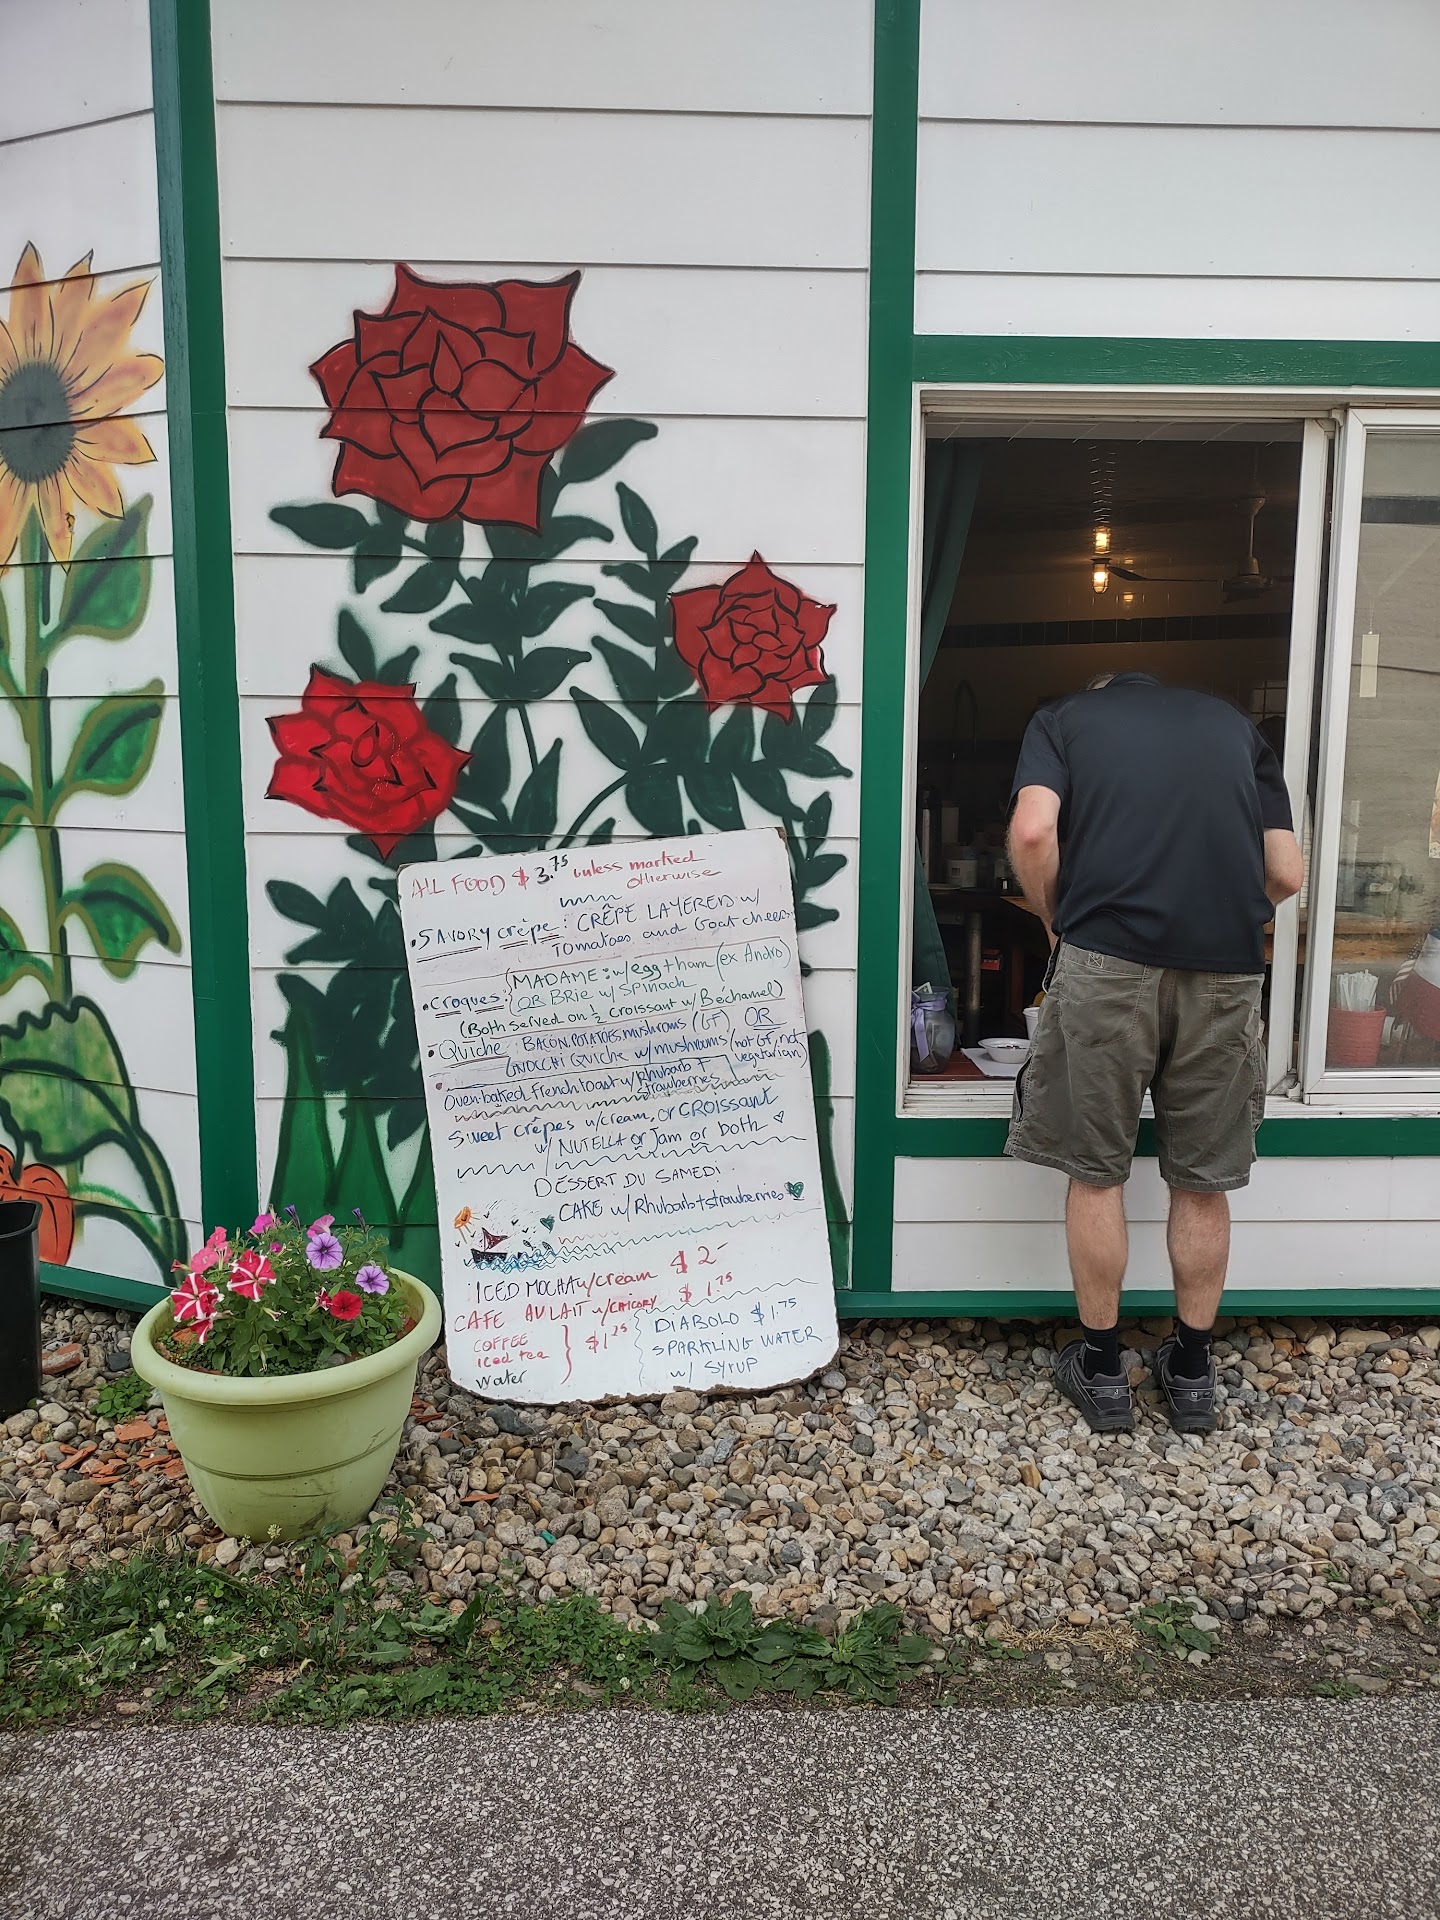 ALL FOOD $3.75 unless marked
otherwise
• SAVORY crêpe: CRÊPE LAYERED w/
Tomatoes and Goat cheese
• CROQUES: MADAME: w/ egg + ham (ex Andro)
OR BRIE w/ SPINACH
(Both served on ½ croissant w/ Béchamel)
• Quiche: BACON, POTATOES, mushrooms (GF) OR
GNOCCHI Quiche w/ mushrooms (not GF, not
vegetarian)
• Oven-baked French toast w/ Rhubarb +
strawberries
Sweet crêpes w/ cream, or CROISSANT
w/ NUTELLA or Jam or both
DESSERT DU SAMEDI
CAKE w/ Rhubarb + strawberries
ICED MOCHA w/ cream $2-
CAFE AU LAIT w/ CHICORY $1.75
COFFEE
Iced tea
Water
$1.25
DIABOLO $1.75
SPARKLING WATER
w/ SYRUP